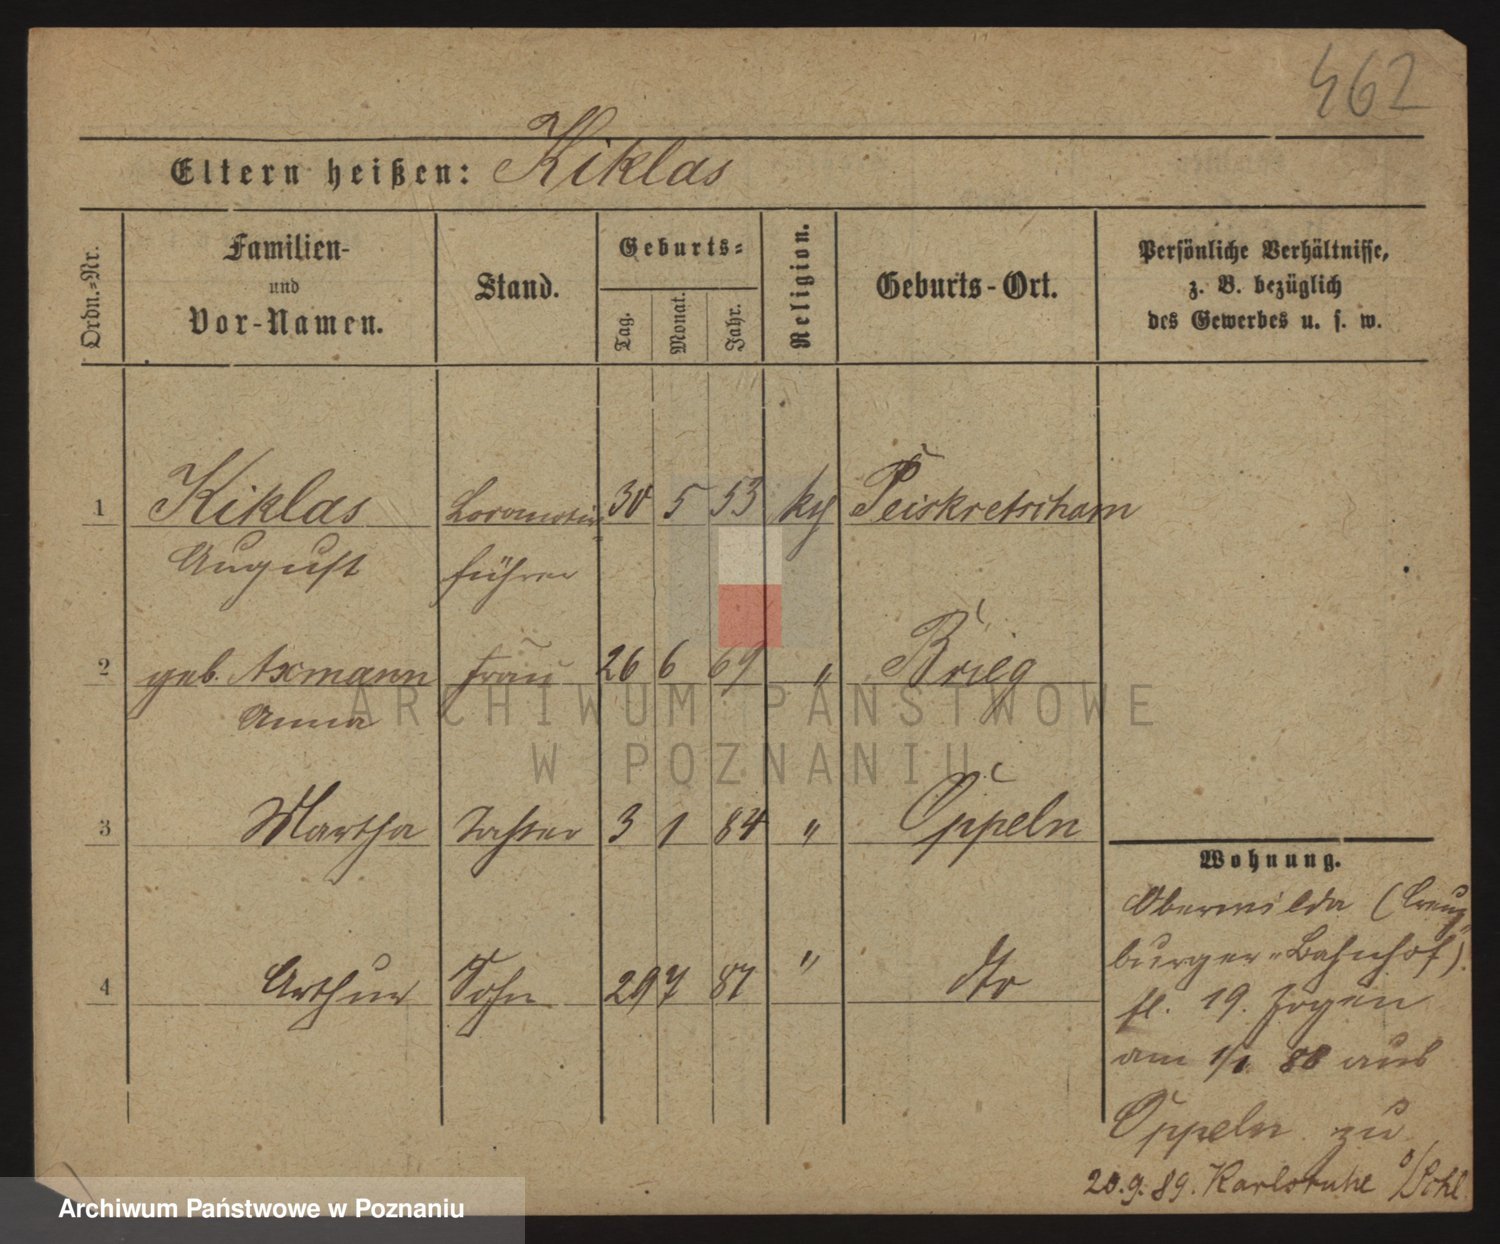 462
Eltern heißen: Kiklas
Ordn.-Nr.
Familien-
und
Vor-Namen.
Stand.
Geburts-
Tag. Monat. Jahr.
Religion.
Geburts-Ort.
Persönliche Verhältnisse,
z. B. bezüglich
des Gewerbes u. s. w.
1 Kiklas Locomotiv 30 5 53 kth Peiskretscham
August führer
2 geb. Axmann Frau 26 6 69 " Brieg
Anna
3 Martha Tochter 3 1 84 " Oppeln
4 Arthur Sohn 29 7 87 " dto
Wohnung.
Oberwilda (Creuz-
burger-Bahnhof).
19. zogen
am 1/1. 88 aus
Oppeln zu
20.9.89. Karlsruhe
ARCHIWUM PAŃSTWOWE
W POZNANIU
Archiwum Państwowe w Poznaniu